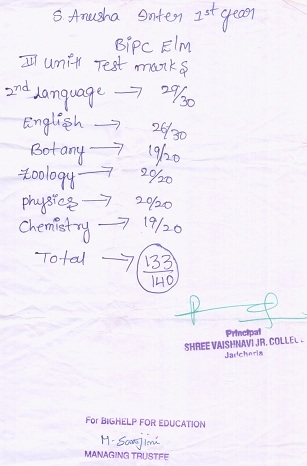 S Anusha Inter 1st year
BiPC E/M
III Unit Test marks
2nd Language → 29/30
English → 26/30
Botany → 19/20
Zoology → 20/20
physics → 20/20
Chemistry → 19/20
Total → 133/140
Principal
SHREE VAISHNAVI JR. COLLE
Jadcherla
For BIGHELP FOR EDUCATION
M. Sarojini
MANAGING TRUSTEE